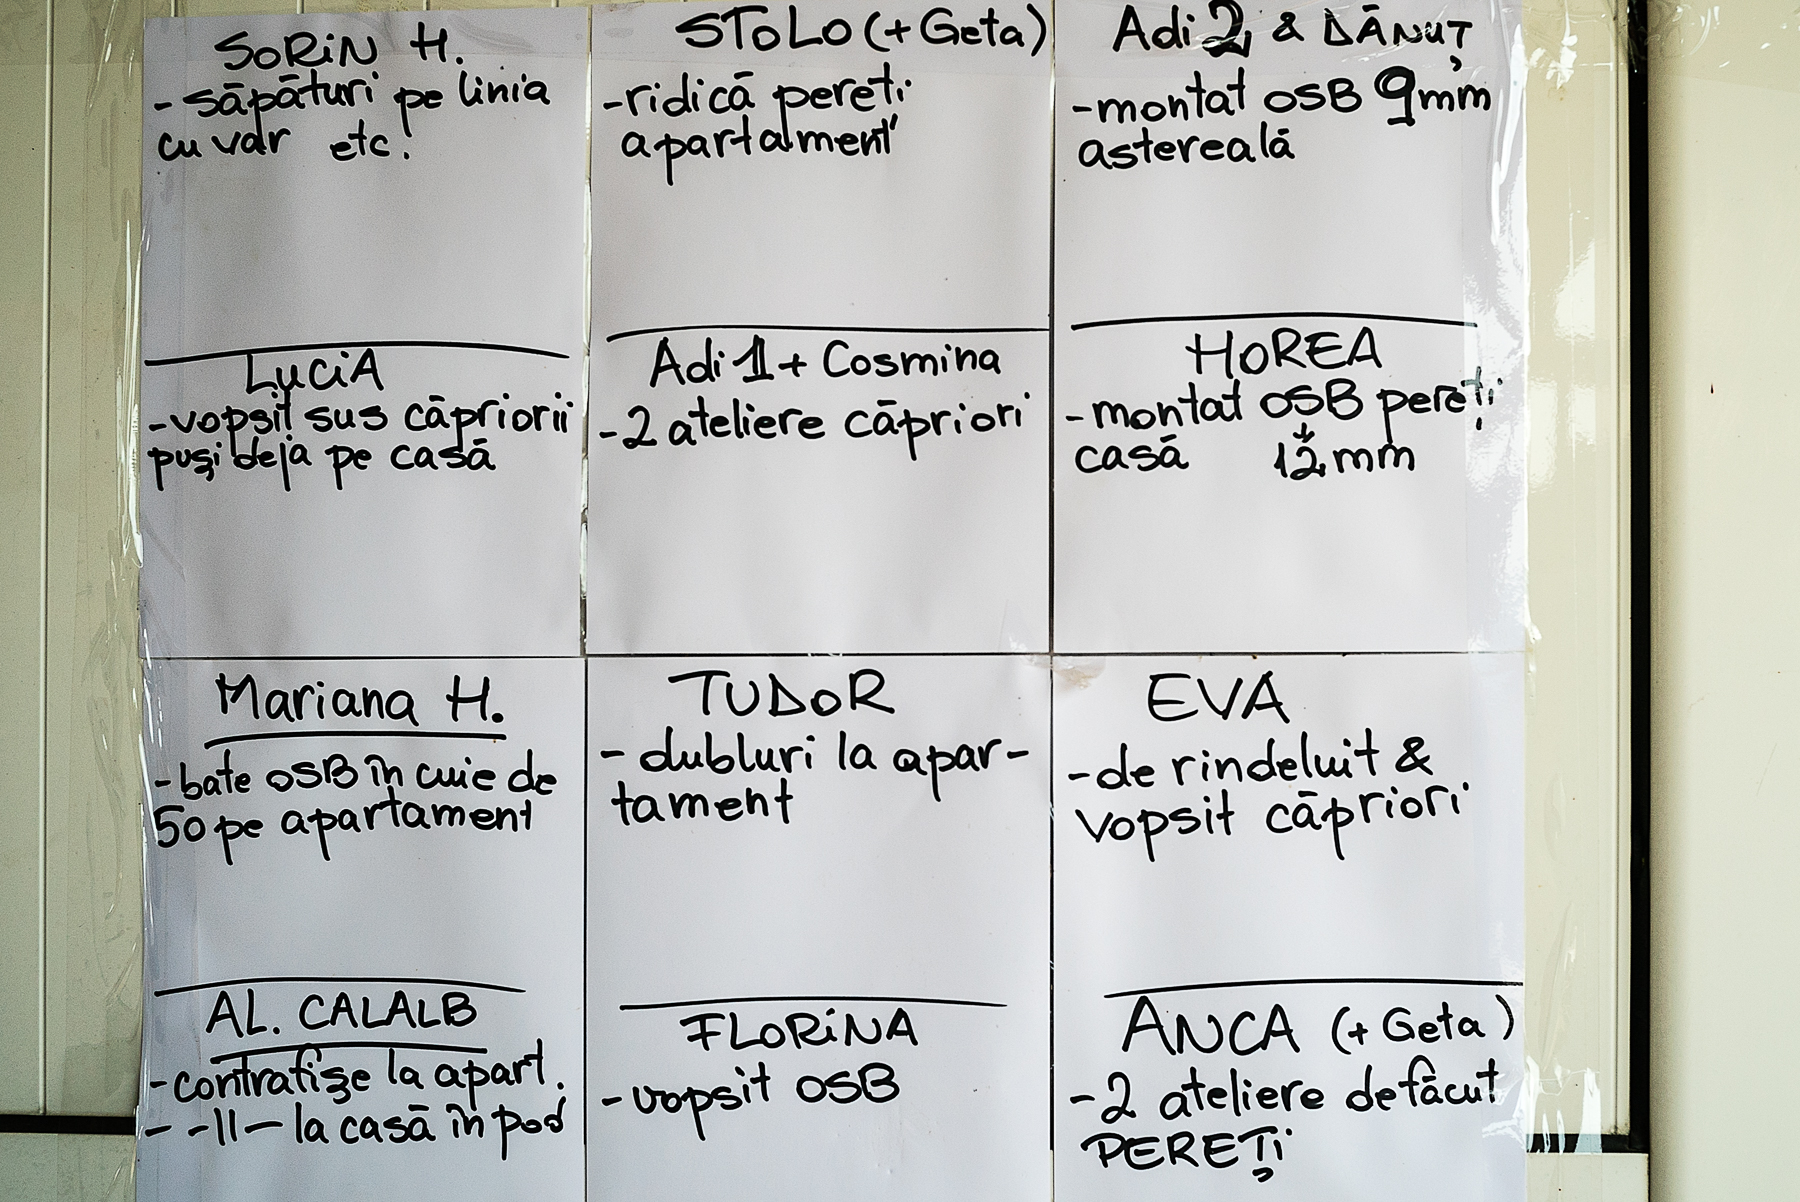 SORiN H.
- săpături pe linia
cu var etc.
LuCiA
- vopsit sus căpriorii
puși deja pe casă
STOLO (+ Geta)
- ridică pereti
apartament
Adi 1 + Cosmina
- 2 ateliere căpriori
Adi 2 & DĂNUȚ
- montat OSB 9mm
astereală
HOREA
- montat OSB pereți
casă 12 mm
Mariana H.
- bate OSB în cuie de
50 pe apartament
AL. CALALB
- contrafișe la apart.
- -11- la casă în pod
TUDOR
- dubluri la apar-
tament
FLORiNA
- vopsit OSB
EVA
- de rindeluit &
vopsit căpriori
ANCA (+ Geta)
- 2 ateliere defăcut
PEREȚi